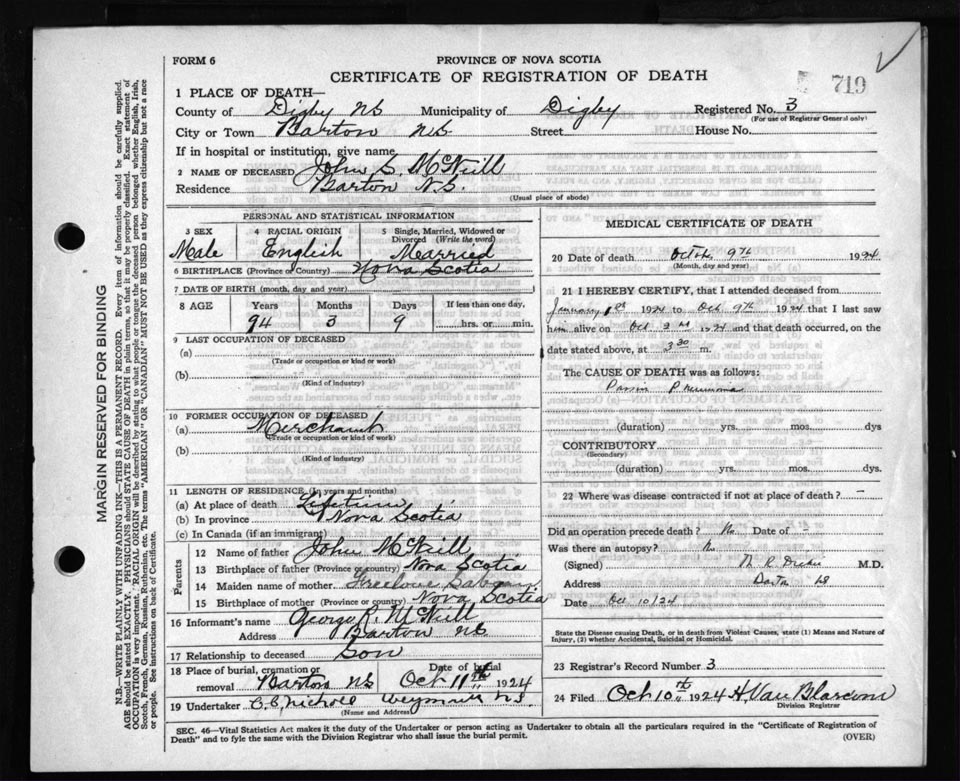 FORM 6
PROVINCE OF NOVA SCOTIA
CERTIFICATE OF REGISTRATION OF DEATH
719
1 PLACE OF DEATH—
County of Digby NS Municipality of Digby Registered No. 3
(For use of Registrar General only)
City or Town Barton NS Street House No.
If in hospital or institution, give name
2 NAME OF DECEASED John S. McNeill
Residence Barton N.S.
(Usual place of abode)
PERSONAL AND STATISTICAL INFORMATION
3 SEX 4 RACIAL ORIGIN 5 Single, Married, Widowed or Divorced (Write the word)
Male English Married
6 BIRTHPLACE (Province or Country) Nova Scotia
7 DATE OF BIRTH (month, day and year)
8 AGE Years Months Days If less than one day,
94 3 9 hrs. or min.
9 LAST OCCUPATION OF DECEASED
(a)
(Trade or occupation or kind of work)
(b)
(Kind of industry)
10 FORMER OCCUPATION OF DECEASED
(a) Merchant
(Trade or occupation or kind of work)
(b)
(Kind of industry)
11 LENGTH OF RESIDENCE (In years and months)
(a) At place of death Lifetime
(b) In province Nova Scotia
(c) In Canada (if an immigrant)
Parents
12 Name of father John McNeill
13 Birthplace of father (Province or country) Nova Scotia
14 Maiden name of mother Freelove
15 Birthplace of mother (Province or country) Nova Scotia
16 Informant's name George R. McNeill
Address Barton NS
17 Relationship to deceased Son
18 Place of burial, cremation or removal Barton NS Date of burial Oct 11th 1924
19 Undertaker Weymouth NS
(Name and Address)
MEDICAL CERTIFICATE OF DEATH
20 Date of death Octob. 9th 1924
(Month, day and year)
21 I HEREBY CERTIFY, that I attended deceased from
January 1st 1924 to Oct 9th 1924 that I last saw
him alive on Oct 1924 and that death occurred, on
date stated above, at 3 30 m.
The CAUSE OF DEATH was as follows:
Pneumonia
(duration) yrs. mos. dys
CONTRIBUTORY
(Secondary)
(duration) yrs. mos. dys.
22 Where was disease contracted if not at place of death? —
Did an operation precede death? No Date of —
Was there an autopsy? No
(Signed) M.D.
Address
Date Oct 10/24
State the Disease causing Death, or in death from Violent Causes, state (1) Means and Nature of
Injury, (2) whether Accidental, Suicidal or Homicidal.
23 Registrar's Record Number 3
24 Filed Oct 10th 1924 H. Van Blarcom
Division Registrar
SEC. 46—Vital Statistics Act makes it the duty of the Undertaker or person acting as Undertaker to obtain all the particulars required in the "Certificate of Registration of
Death" and to fyle the same with the Division Registrar who shall issue the burial permit.
(OVER)
MARGIN RESERVED FOR BINDING
N.B.—WRITE PLAINLY WITH UNFADING INK—THIS IS A PERMANENT RECORD. Every item of information should be carefully supplied.
AGE should be stated EXACTLY. PHYSICIANS should STATE CAUSE OF DEATH in plain terms, so that it may be properly classified. Exact statement of
OCCUPATION is very important. RACIAL ORIGIN will be described by stating to what people or tongue the deceased person belonged whether English, Irish,
Scotch, French, German, Russian, Ruthenian, etc. The terms "AMERICAN" OR "CANADIAN" MUST NOT BE USED as they express citizenship but not a race
or people. See instructions on back of Certificate.